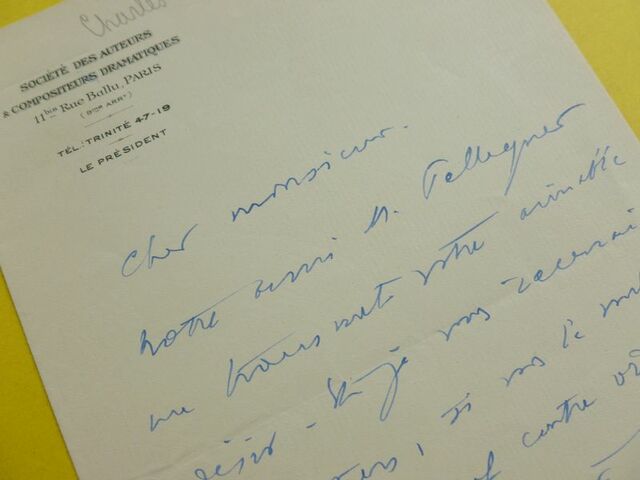 Charles
SOCIÉTÉ DES AUTEURS
& COMPOSITEURS DRAMATIQUES
11bis Rue Ballu, PARIS
(9me ARRt)
TÉL: TRINITÉ 47-19
LE PRÉSIDENT
Cher monsieur.
notre ami M.
me transmet votre aimable
désir - et je vous recevrai
si vous le
contre